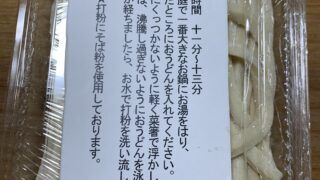 時間　十一分～十三分
庭で一番大きなお鍋にお湯をはり、
たところにおうどんを入れてください。
くっつかないように軽く菜箸で浮かし
は、沸騰し過ぎないようにおうどんを泳
が経ちましたら、お水で打粉を洗い流し
打粉にそば粉を使用しております。